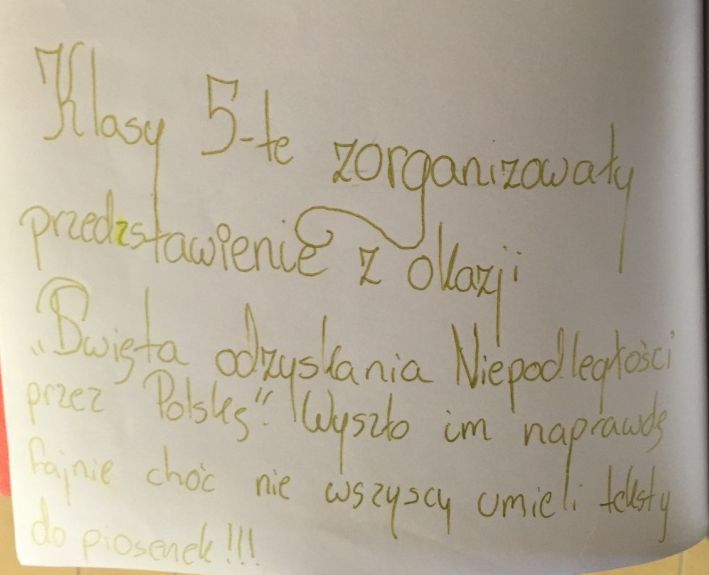 Klasy 5-te zorganizowały
przedzstawienie z okazji
„Święta odzyskania Niepodległości
przez Polskę". Wyszło im naprawdę
fajnie choć nie wszyscy umieli teksty
do piosenek!!!